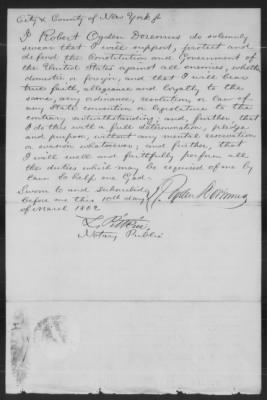 City & County of New York ss
I Robert Ogden Doremus do solemnly
swear that I will support, protect and
defend the Constitution and Government of
the United States against all enemies, whether
domestic or foreign, and that I will bear
true faith, allegiance and loyalty to the
same, any ordinance, resolution, or law of
any State convention or legislature to the
contrary notwithstanding; and, further, that
I do this with a full determination, pledge
and purpose, without any mental reservation
or evasion whatsoever; and further, that
I will well and faithfully perform all
the duties which may be required of me by
law. So help me God.
Sworn to and Subscribed
before me this 10th day
of March 1862
R. Ogden Doremus
Notary Public